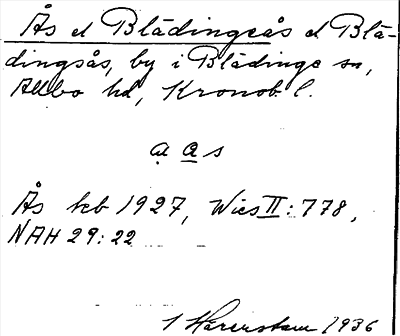 Ås el Blädingeås el Blä-
dingsås, by i Blädinge sn,
Allbo hd, Kronob. l.
a̤ a s
Ås kcb 1927, Wies II: 778,
NAH 29: 22
1936